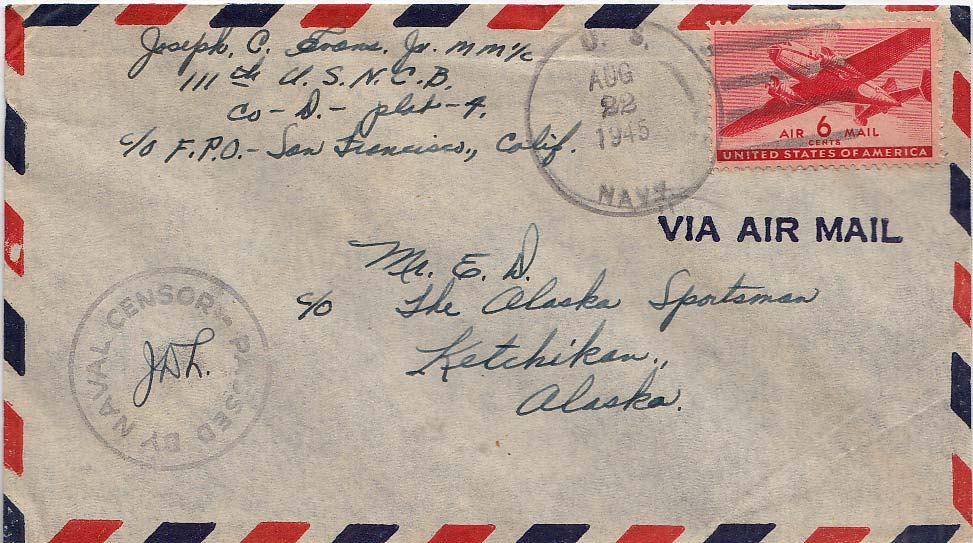 Joseph. C. Evans, Jr. MM 1/c
111th U.S.N.C.B.
Co-D.- plat-4.
c/o F.P.O.- San Francisco., Calif.
U. S.
AUG
22
1945
NAVY
AIR 6 MAIL
CENTS
UNITED STATES OF AMERICA
VIA AIR MAIL
Mr. E. D.
c/o The Alaska Sportsman
Ketchikan.,
Alaska.
PASSED BY NAVAL CENSOR